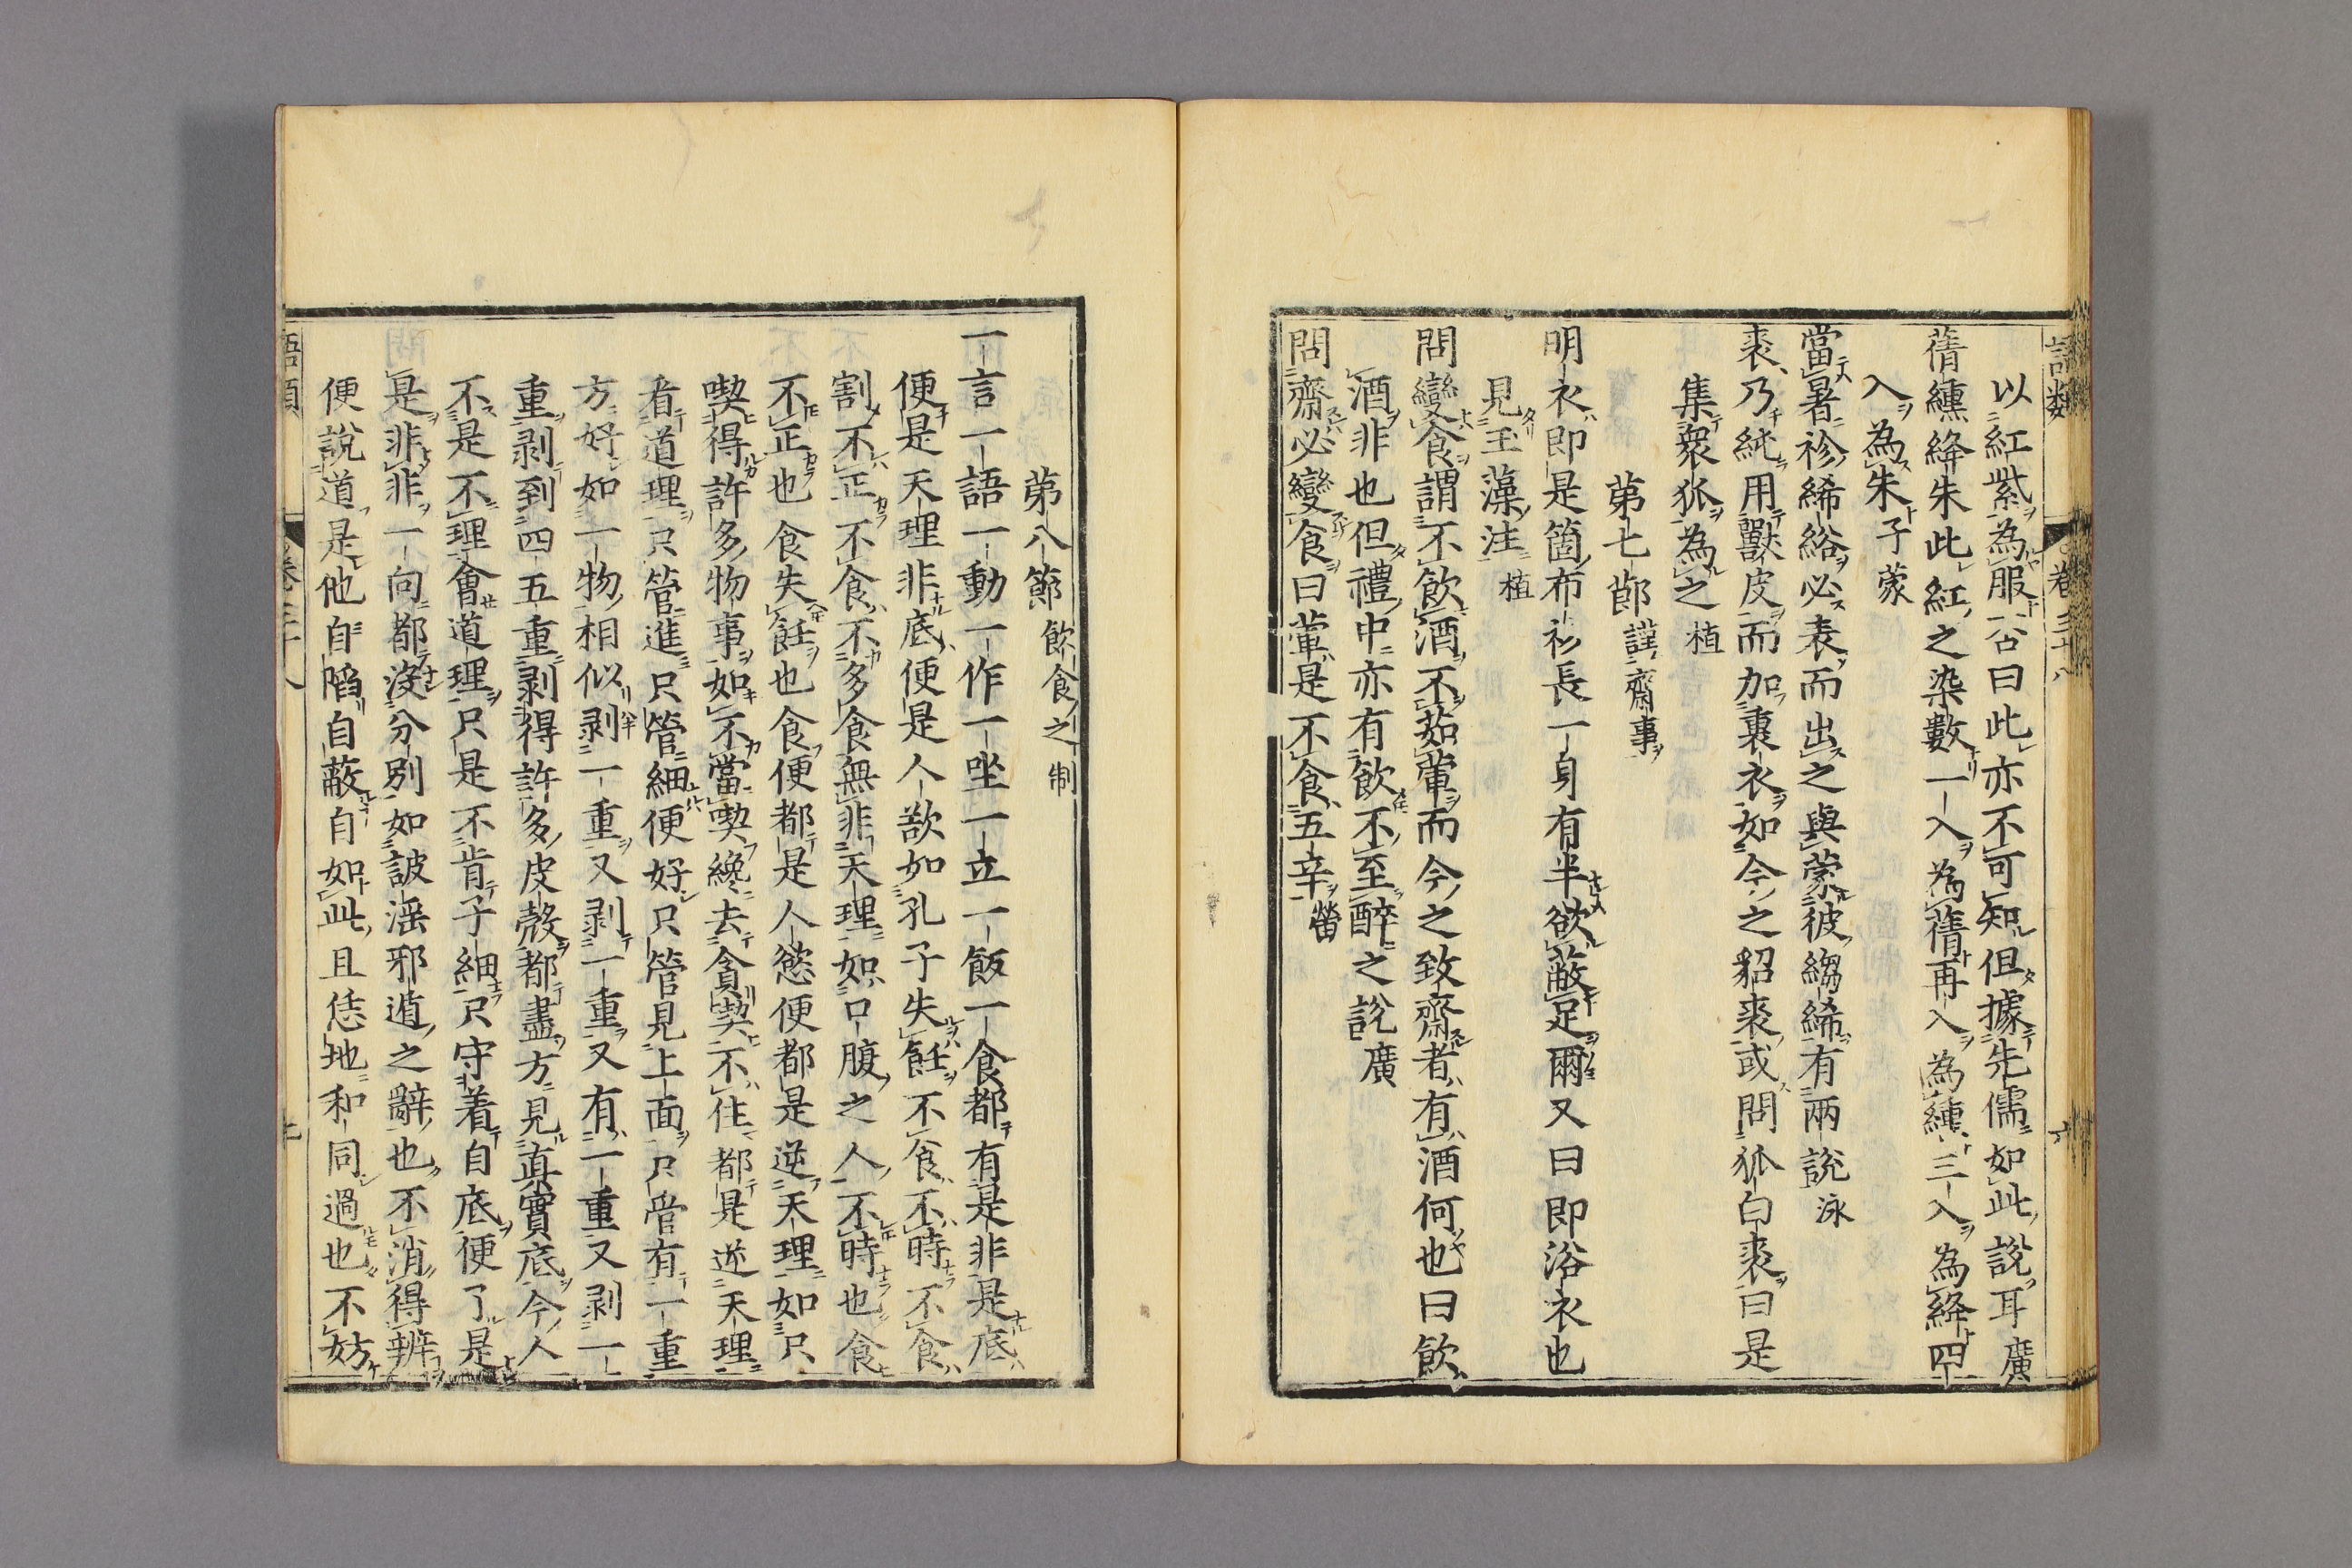 語類 卷三十八 六
以紅紫為服否曰此亦不可知但據先儒如此說耳廣
蒨纁絳朱此紅之染數一入為蒨再入為纁三入為絳四
入為朱子蒙
當暑袗絺綌必表而出之與蒙彼縐絺有兩說泳
裘乃純用獸皮而加裏衣如今之貂裘或問狐白裘曰是
集衆狐為之植
第七節謹齋事
明衣即是箇布衫長一身有半欲蔽足爾又曰即浴衣也
見玉藻注植
問變食謂不飲酒不茹葷而今之致齋者有酒何也曰飲
酒非也但禮中亦有飲不至醉之說廣
問齋必變食曰葷是不食五辛㽦
第八節飲食之制
一言一語一動一作一坐一立一飯一食都有是非是底
便是天理非底便是人欲如孔子失飪不食不時不食
割不正不食不多食無非天理如口腹之人不時也食
不正也食失飪也食便都是人慾便都是逆天理如只
喫得許多物事如不當喫纔去貪喫不住都是逆天理
看道理只管進只管細便好只管見上面只管有一重
方好如一物相似剥一重又剥一重又有一重又剥一
重剥到四五重剥得許多皮殼都盡方見真實底今人
不是不理會道理只是不肯子細只守着自底便了是
是非非一向都沒分別如詖淫邪遁之辭也不消得辨
便說道是他自陷自蔽自如此且恁地和同過也不妨
語類 卷三十八 七